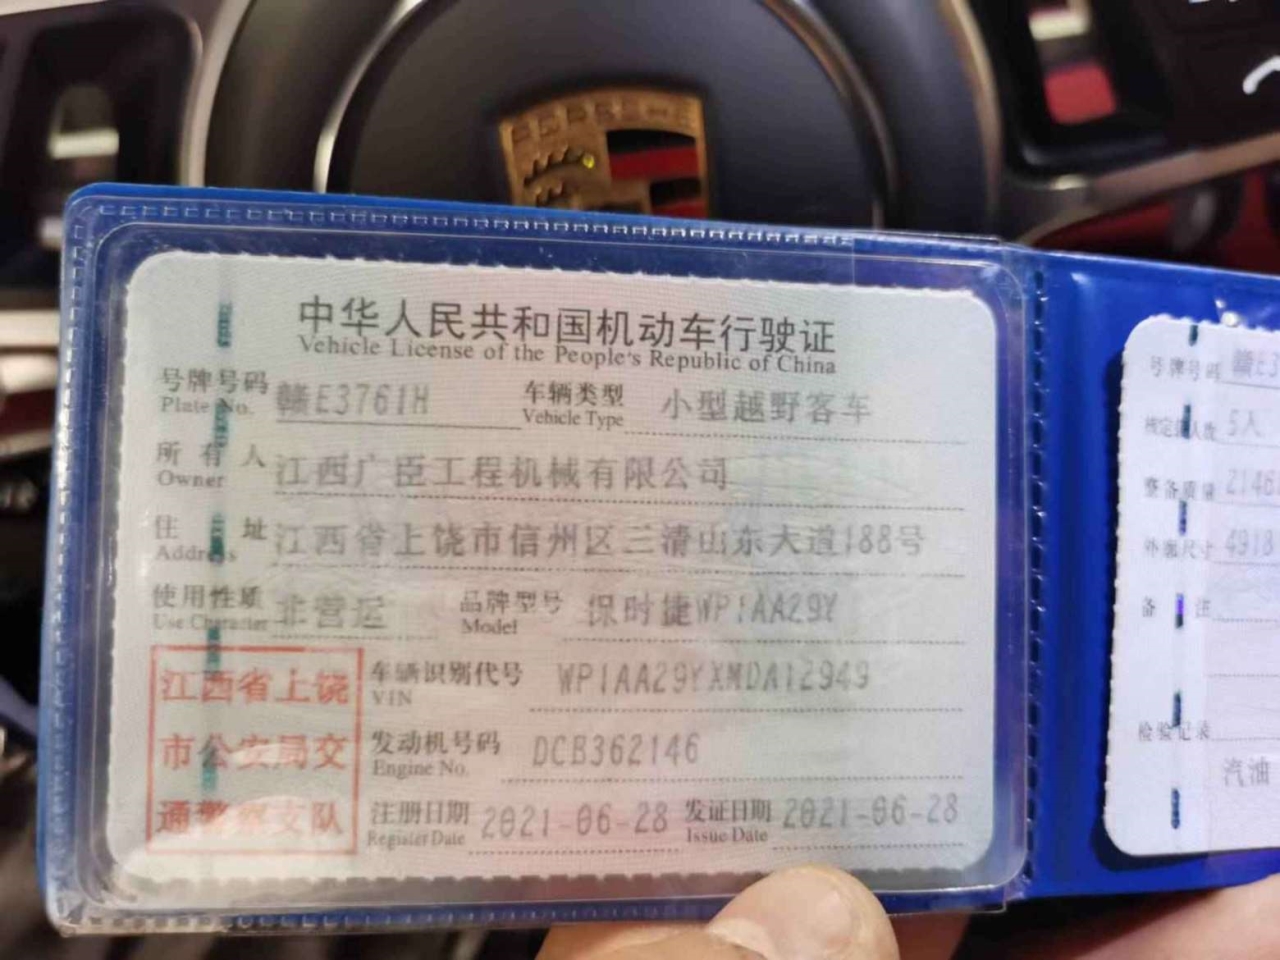 PORSCHE
中华人民共和国机动车行驶证
Vehicle License of the People's Republic of China
号牌号码 赣E3761H 车辆类型 小型越野客车
Plate No. Vehicle Type
所有人 江西广臣工程机械有限公司
Owner
住址 江西省上饶市信州区三清山东大道188号
Address
使用性质 非营运 品牌型号 保时捷WP1AA29Y
Use Character Model
江西省上饶
市公安局交
通警察支队
车辆识别代号 WP1AA29YXMDA12949
VIN
发动机号码 DCB362146
Engine No.
注册日期 2021-06-28 发证日期 2021-06-28
Register Date Issue Date
号牌号码 赣E3
核定载人数 5人
整备质量 2146
外廓尺寸 4918
备注
检验记录
汽油